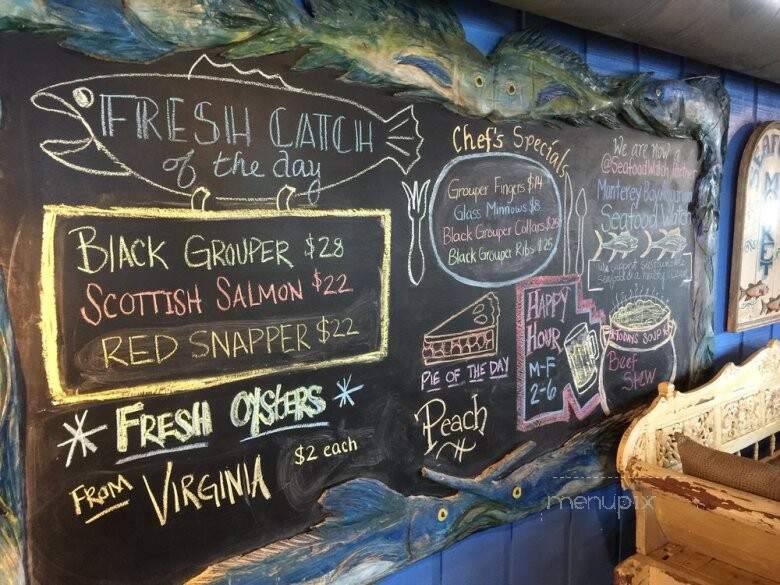 FRESH CATCH
of the day
BLACK GROUPER $28
SCOTTISH SALMON $22
RED SNAPPER $22
FRESH OYSTERS
FROM VIRGINIA
$2 each
Chef's Specials
Grouper Fingers $14
Glass Minnows $8
Black Grouper Collars $25
Black Grouper Ribs $25
PIE OF THE DAY
Peach
HAPPY
HOUR
M-F
2-6
We are now a
@SeafoodWatch Partner
Monterey Bay Aquarium
Seafood Watch
We support sustainable
TODAYS SOUP
Beef
Stew
MARKET
menupix